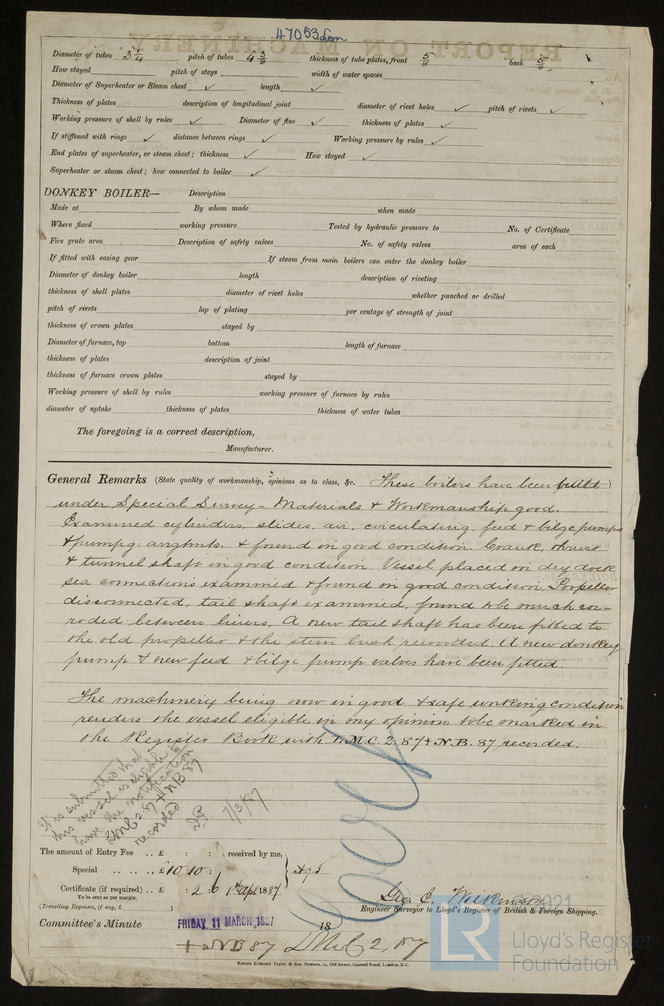 47053 Lon
Diameter of tubes 3 1/4 pitch of tubes 4 3/8 thickness of tube plates, front 5/8 back 5/8
How stayed pitch of stays width of water spaces
Diameter of Superheater or Steam chest ✓ length ✓
Thickness of plates description of longitudinal joint diameter of rivet holes ✓ pitch of rivets ✓
Working pressure of shell by rules ✓ Diameter of flue ✓ thickness of plates ✓
If stiffened with rings ✓ distance between rings ✓ Working pressure by rules ✓
End plates of superheater, or steam chest; thickness ✓ How stayed ✓
Superheater or steam chest; how connected to boiler ✓
DONKEY BOILER— Description
Made at By whom made when made
Where fixed working pressure Tested by hydraulic pressure to No. of Certificate
Fire grate area Description of safety valves No. of safety valves area of each
If fitted with easing gear If steam from main boilers can enter the donkey boiler
Diameter of donkey boiler length description of riveting
thickness of shell plates diameter of rivet holes whether punched or drilled
pitch of rivets lap of plating per centage of strength of joint
thickness of crown plates stayed by
Diameter of furnace, top bottom length of furnace
thickness of plates description of joint
thickness of furnace crown plates stayed by
Working pressure of shell by rules working pressure of furnace by rules
diameter of uptake thickness of plates thickness of water tubes
The foregoing is a correct description,
Manufacturer.
General Remarks (State quality of workmanship, opinions as to class, &c. These boilers have been built
under Special Survey - Materials & Workmanship good.
Examined cylinders, slides, air, circulating, feed & bilge pumps
& pumpg. arrgmts. & found in good condition. Crank, thrust
& tunnel shaft in good condition. Vessel placed on dry dock
sea connections examined & found in good condition. Propeller
disconnected, tail shaft examined, found to be much cor-
roded between liners. A new tail shaft has been fitted to
the old propeller & the stern bush rewooded. A new donkey
pump & new feed & bilge pump valves have been fitted.
The machinery being now in good & safe working condition
renders the vessel eligible in my opinion to be marked in
the Register Book with L.M.C. 2.87 & N.B. 87 recorded.
It is submitted that
this vessel is eligible to
have the notification
LMC 2 87 & NB 87
recorded
7/3/87
The amount of Entry Fee .. £ : : received by me,
Special .. .. .. .. £ 10 10 :
Certificate (if required) .. £ : 2 6 1st Apl 1887
To be sent as per margin.
(Travelling Expenses, if any, £ )
Geo. C. Wilkinson
Engineer Surveyor to Lloyd's Register of British & Foreign Shipping.
Committee's Minute FRIDAY 11 MARCH 1887 18
+ NB 87 LMC 2, 87
Robert Edmund Taylor & Son Printers, 19, Old Street, Goswell Road, London, E.C.
LR
Lloyd's Register
Foundation